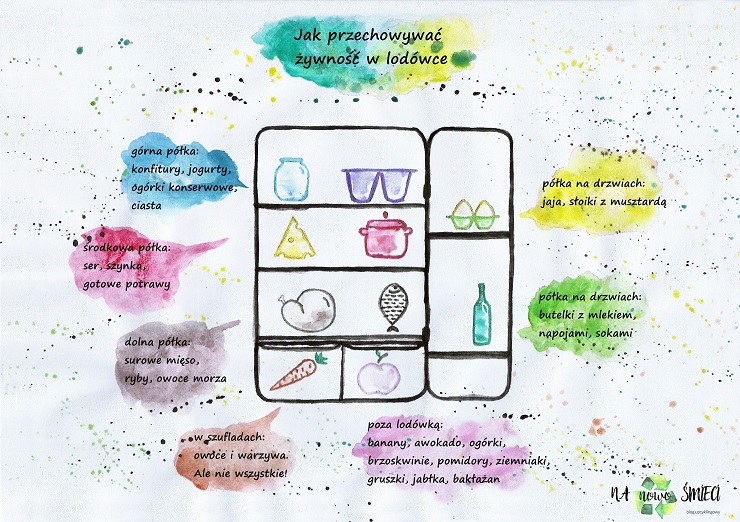 Jak przechowywać
żywność w lodówce
górna półka:
konfitury, jogurty,
ogórki konserwowe,
ciasta
środkowa półka:
ser, szynka,
gotowe potrawy
dolna półka:
surowe mięso,
ryby, owoce morza
w szufladach:
owoce i warzywa.
Ale nie wszystkie!
półka na drzwiach:
jaja, słoiki z musztardą
półka na drzwiach:
butelki z mlekiem,
napojami, sokami
poza lodówką:
banany, awokado, ogórki,
brzoskwinie, pomidory, ziemniaki,
gruszki, jabłka, bakłażan
NA nowo ŚMIECI
blog upcyklingowy